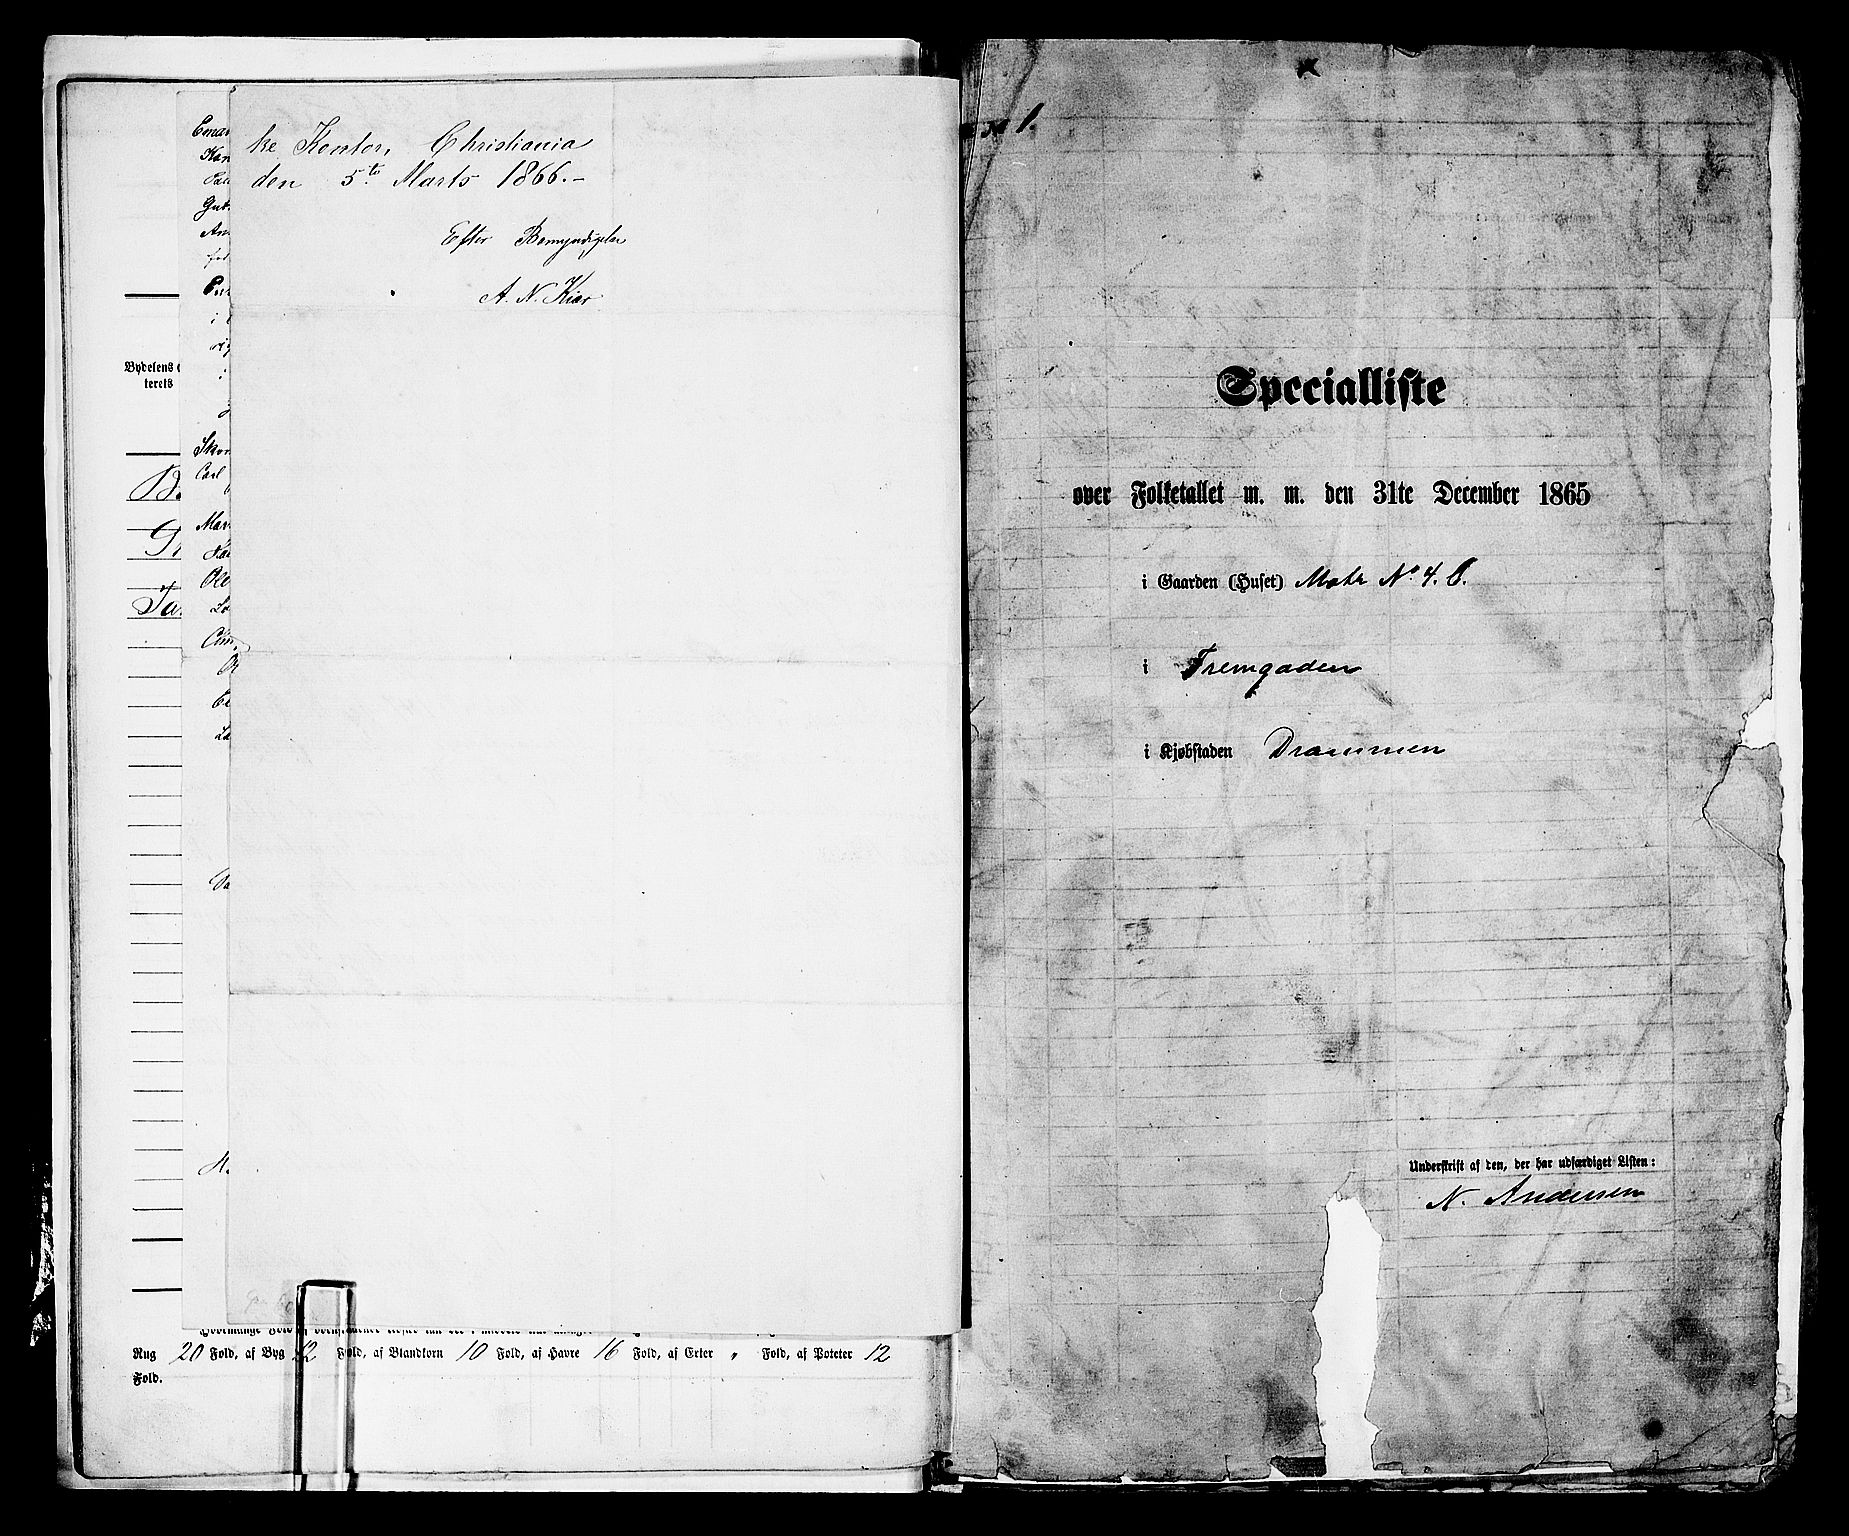 ke Kontor, Christiania
den 5te Marts 1866.-
Efter Bemyndigelse
A. N. Kiær
Eman
Kar
Gut
An
i
Carl
Mar
Ole
Bydelens
terets
B
Gr
Ta
Rug 20 Fold, af Byg 12 Fold, af Blandkorn 10 Fold, af Havre 16 Fold, af Erter " Fold, af Poteter 12
Fold.
No 1.
Specialliste
over Folketallet m. m. den 31te December 1865
i Gaarden (Huset) Matr No. 4. b.
i Fremgaden
i Kjøbstaden Drammen
Underskrift af den, der har udfærdiget Listen:
N. Andersen